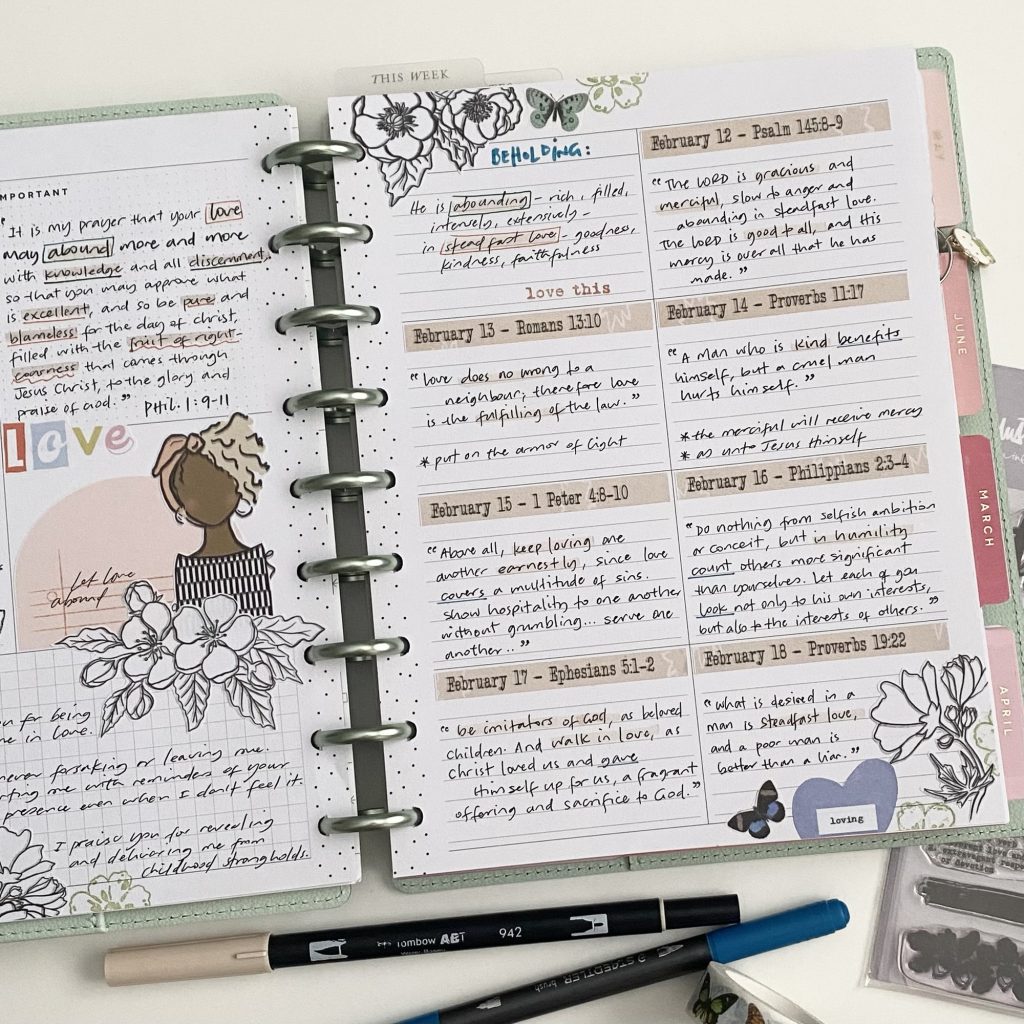 IMPORTANT
"It is my prayer that your love
may abound more and more
with knowledge and all discernment,
so that you may approve what
is excellent, and so be pure and
blameless for the day of christ,
filled with the fruit of right-
eousness that comes through
Jesus Christ, to the glory and
praise of God." Phil. 1:9-11
LOVE
Let love
abound
for being
me in Love.
never forsaking or leaving me.
me with reminders of your
presence even when I don't feel it.
I praise you for revealing
and delivering me from
childhood strongholds.
THIS WEEK
BEHOLDING:
He is abounding - rich, filled,
intensely, extensively -
in steadfast love - goodness,
kindness, faithfulness
love this
February 12 - Psalm 145:8-9
"The LORD is gracious and
merciful, slow to anger and
abounding in steadfast love.
The LORD is good to all, and His
mercy is over all that he has
made."
February 13 - Romans 13:10
"Love does no wrong to a
neighbour; therefore love
is the fulfilling of the law."
* put on the armor of light
February 14 - Proverbs 11:17
"A man who is kind benefits
himself, but a cruel man
hurts himself."
* the merciful will receive mercy
* as unto Jesus Himself
February 15 - 1 Peter 4:8-10
"Above all, keep loving one
another earnestly, since love
covers a multitude of sins.
Show hospitality to one another
without grumbling... serve one
another.."
February 16 - Philippians 2:3-4
"Do nothing from selfish ambition
or conceit, but in humility
count others more significant
than yourselves. Let each of you
look not only to his own interests,
but also to the interests of others."
February 17 - Ephesians 5:1-2
"be imitators of God, as beloved
children. And walk in love, as
Christ loved us and gave
Himself up for us, a fragrant
offering and sacrifice to God."
February 18 - Proverbs 19:22
"What is desired in a
man is steadfast love,
and a poor man is
better than a liar."
loving
MAY
JUNE
MARCH
APRIL
Tombow ABT 942
STAEDTLER